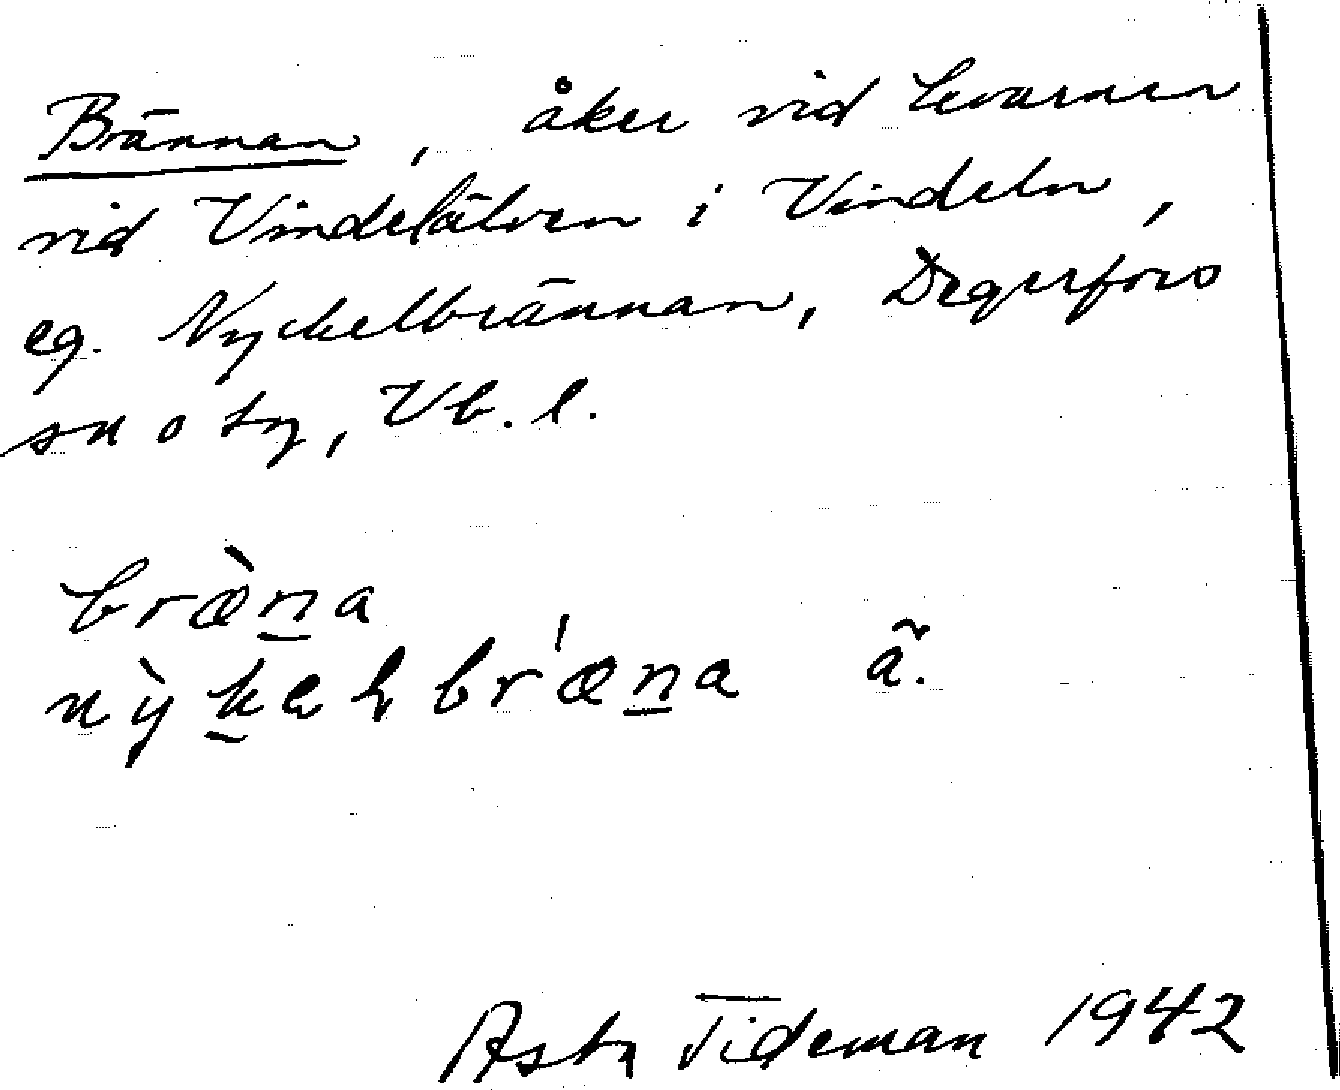 Brännan, åker vid kvarnen
vid Vindelälven i Vindeln,
eg. Nyckelbrännan, Degerfors
sn o tg, Vb. l.
bræ̀n̲a
nỳk̲eɫbrǽn̲a ã.
Asta Tideman 1942